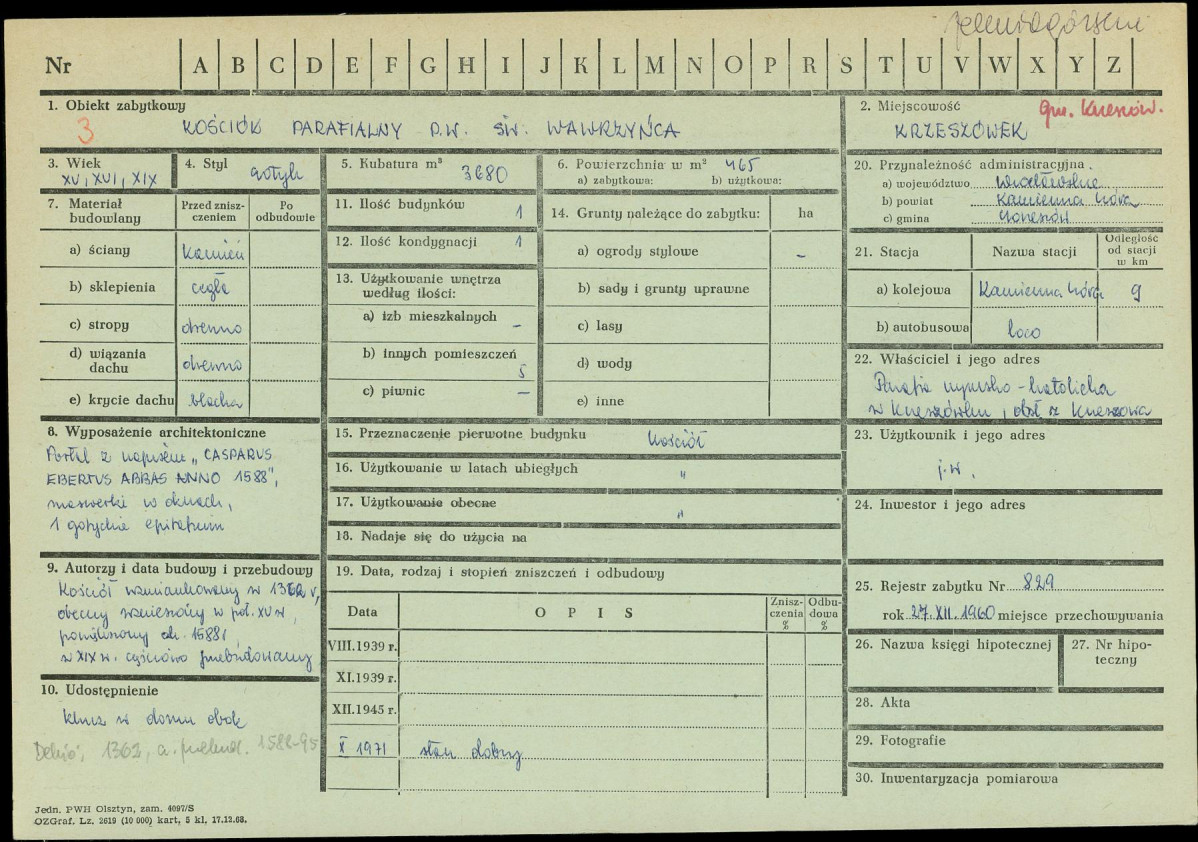 jeleniogórskie
Nr A B C D E F G H I J K L M N O P R S T U V W X Y Z
1. Obiekt zabytkowy
3
KOŚCIÓŁ PARAFIALNY P.W. ŚW. WAWRZYŃCA
2. Miejscowość
gm. Krzeszów.
KRZESZÓWEK
3. Wiek
XV, XVI, XIX
4. Styl
gotyk
5. Kubatura m³
3680
6. Powierzchnia w m² 465
a) zabytkowa: b) użytkowa:
20. Przynależność administracyjna
a) województwo wrocławskie
b) powiat Kamienna Góra
c) gmina Krzeszów
7. Materiał budowlany
Przed zniszczeniem
Po odbudowie
a) ściany kamień
b) sklepienia cegła
c) stropy drewno
d) wiązania dachu drewno
e) krycie dachu blacha
11. Ilość budynków 1
12. Ilość kondygnacji 1
13. Użytkowanie wnętrza
według ilości:
a) izb mieszkalnych –
b) innych pomieszczeń
5
c) piwnic –
14. Grunty należące do zabytku: ha
a) ogrody stylowe –
b) sady i grunty uprawne
c) lasy
d) wody
e) inne
21. Stacja Nazwa stacji Odległość od stacji w km
a) kolejowa Kamienna Góra 9
b) autobusowa loco
22. Właściciel i jego adres
Parafia rzymsko-katolicka
w Krzeszówku, obsł. z Krzeszowa
8. Wyposażenie architektoniczne
Portal z napisem „CASPARUS
EBERTUS ABBAS ANNO 1588",
maswerki w oknach,
1 gotyckie epitafium
15. Przeznaczenie pierwotne budynku kościół
16. Użytkowanie w latach ubiegłych "
17. Użytkowanie obecne "
18. Nadaje się do użycia na
23. Użytkownik i jego adres
j.w.
24. Inwestor i jego adres
9. Autorzy i data budowy i przebudowy
Kościół wzmiankowany w 1362 r,
obecny wzniesiony w poł. XV w,
powiększony ok. 1588,
w XIX w. częściowo przebudowany
19. Data, rodzaj i stopień zniszczeń i odbudowy
Data OPIS Zniszczenia % Odbudowa %
VIII.1939 r.
XI.1939 r.
XII.1945 r.
X 1971 stan dobry
25. Rejestr zabytku Nr 829
rok 27.XII.1960 miejsce przechowywania
26. Nazwa księgi hipotecznej
27. Nr hipoteczny
28. Akta
29. Fotografie
30. Inwentaryzacja pomiarowa
10. Udostępnienie
klucz w domu obok
Dehio, 1362, a. przebud. 1588-95
Jedn. PWH Olsztyn, zam. 4097/S
OZGraf. Lz. 2619 (10 000) kart, 5 kl, 17.12.68.